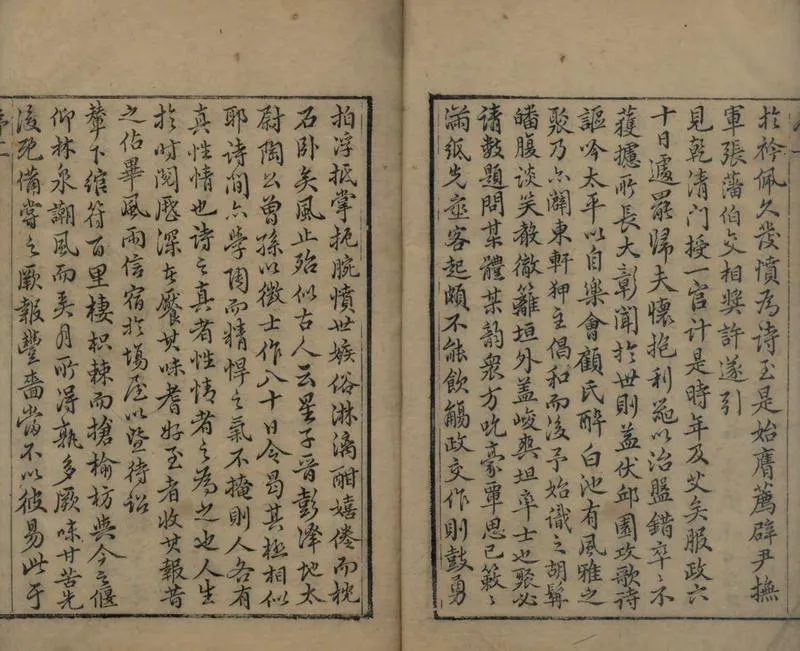 於衿佩久發憤為詩至是始膺薦辟尹撫
軍張藩伯交相獎許遂引
見乾清門授一官計是時年及艾矣服政六
十日遽罷歸夫懷抱利器以治盤錯卒卒不
獲攄所長大彰聞於世則益伏邱園攻歌詩
謳吟太平以自樂會顧氏醉白池有風雅之
聚乃亦闢東軒狎主倡和而後予始識之胡髯
皤腹談笑教徹籬垣外蓋峻爽坦率士也聚必
請數題問某體某韵衆方吮豪覃思已簌簌
滿紙先衆客起頗不能飲觴政交作則鼓勇
拍浮抵掌扼腕憤世嫉俗淋漓酣嬉倦而枕
石卧矣風止殆似古人云星子晉彭澤地太
尉陶公曾孫以徵士作八十日令曷其極相似
耶诗間亦學陶而精悍之氣不掩則人各有
真性情也诗之真者性情者之為之也人生
於时閲歴深在饜其味耆好至者收其報昔
之佔畢風雨信宿於場屋以暨待詔
輦下綰符百里棲枳棘而搶榆枋與今之偃
仰林泉謝風而弄月所得孰多厥味甘苦先
後既備嘗之厥報豐嗇當不以彼易此于
序二